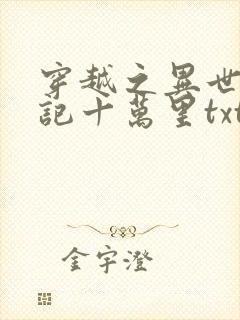 穿越之異世
記十萬里txt
金宇澄